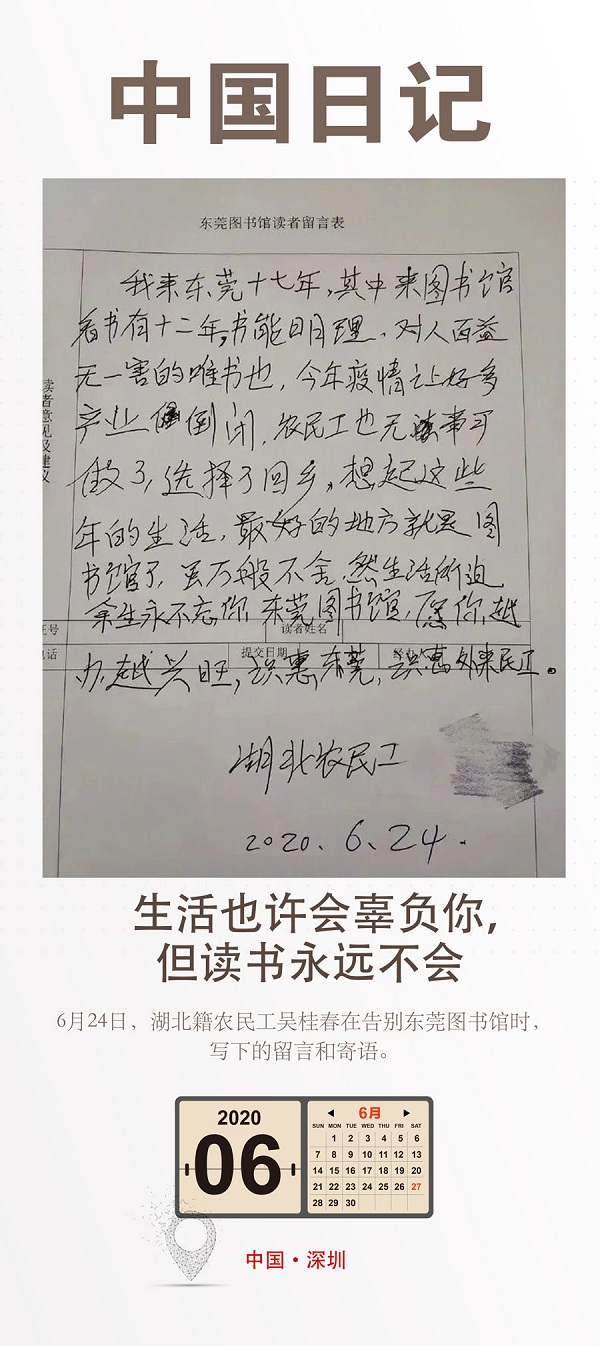 中国日记
东莞图书馆读者留言表
我来东莞十七年,其中来图书馆
看书有十二年,书能明理、对人百益
无一害的唯书也,今年疫情让好多
产业倒闭,农民工也无事可
做了,选择了回乡,想起这些
年的生活,最好的地方就是图
书馆了,虽万般不舍,然生活所迫
余生永不忘你,东莞图书馆,愿你越
办越兴旺,识惠东莞,识惠外来民工。
读者意见及建议
证号
读者姓名
电话
提交日期
湖北农民工
2020、6、24.
生活也许会辜负你,
但读书永远不会
6月24日,湖北籍农民工吴桂春在告别东莞图书馆时,
写下的留言和寄语。
2020
06
6月
SUN MON TUE WED THU FRI SAT
1 2 3 4 5 6
7 8 9 10 11 12 13
14 15 16 17 18 19 20
21 22 23 24 25 26 27
28 29 30
中国·深圳